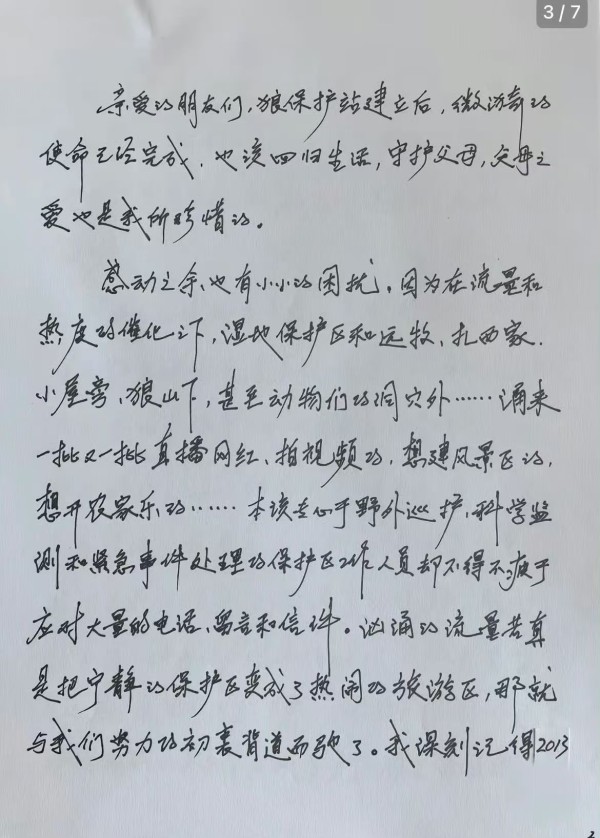 3/7
亲爱的朋友们，狼保护站建立后，微漪的
使命已经完成，也该回归生活，守护父母，父母之
爱也是我所珍惜的。
感动之余也有小小的困扰。因为在流量和
热度的催化之下，湿地保护区和远牧、扎西家、
小屋旁、狼山下，甚至动物们的洞穴外……涌来
一批又一批直播网红、拍视频的，想建风景区的，
想开农家乐的……本该专心于野外巡护、科学监
测和紧急事件处理的保护区工作人员却不得不疲于
应对大量的电话、留言和信件。汹涌的流量若真
是把宁静的保护区变成了热闹的旅游区，那就
与我们努力的初衷背道而驰了。我深刻记得2013